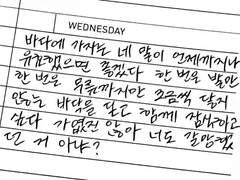 WEDNESDAY
바다에 가자는 네 말이 언제까지나
유효했으면 좋겠다 한 번은 발만
한 번은 무릎까지만 조금씩 닿지
않는 바닥을 딛고 함께 잠식하고
싶다 가엾진 않아 너도 갈망했
던 거 아냐?